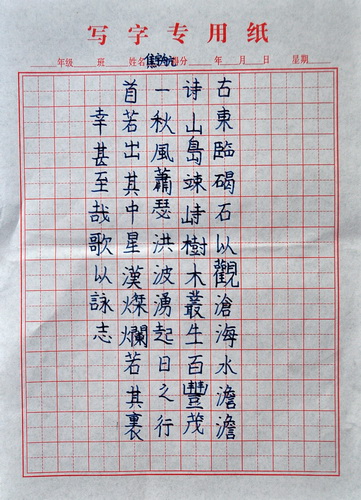 写字专用纸
年级 班 姓名 分 年 月 日 星期
古诗一首
東臨碣石以觀滄海水澹澹
山島竦峙樹木叢生百豐茂
秋風蕭瑟洪波湧起日之行
若出其中星漢燦爛若其裏
幸甚至哉歌以詠志